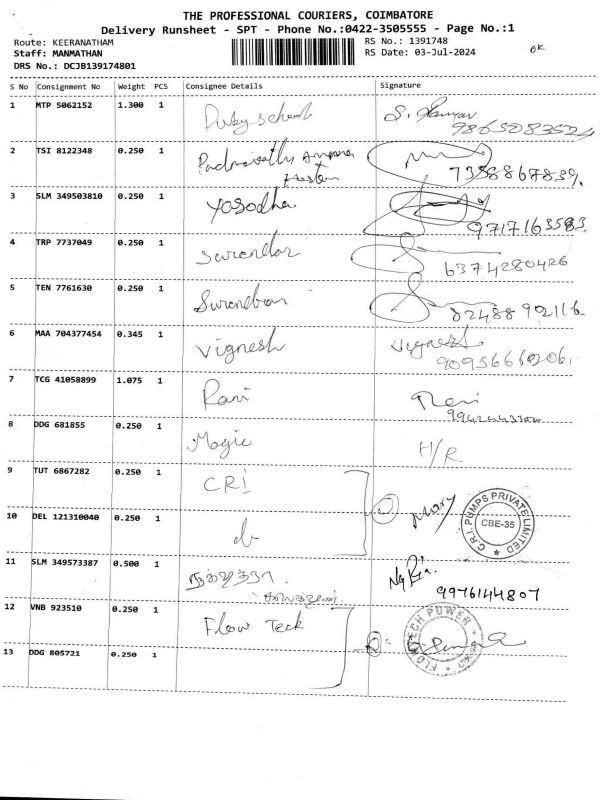 THE PROFESSIONAL COURIERS, COIMBATORE
Delivery Runsheet - SPT - Phone No.:0422-3505555 - Page No.:1
Route: KEERANATHAM RS No.: 1391748
Staff: MANMATHAN RS Date: 03-Jul-2024
DRS No.: DCJB139174801
S No Consignment No Weight PCS Consignee Details Signature
1 MTP 5062152 1.300 1 Ruby school
2 TSI 8122348 0.250 1 Padmavathi
7358867839.
3 SLM 349503810 0.250 1 Yasodha
9717163583
4 TRP 7737049 0.250 1 Surendar
6374280426
5 TEN 7761630 0.250 1
82488902116
6 MAA 704377454 0.345 1 Vignesh Vignesh
7 TCG 41058899 1.075 1 Rani Rani
8 DDG 681855 0.250 1 Magic H/R
9 TUT 6867282 0.250 1 CRI
10 DEL 121310040 0.250 1 Mary
C.R.I. PUMPS PRIVATE LIMITED
CBE-35
11 SLM 349573387 0.500 1
9976144807
12 VNB 923510 0.250 1 Flow Teck
FLOWTECH POWER
13 DDG 805721 0.250 1